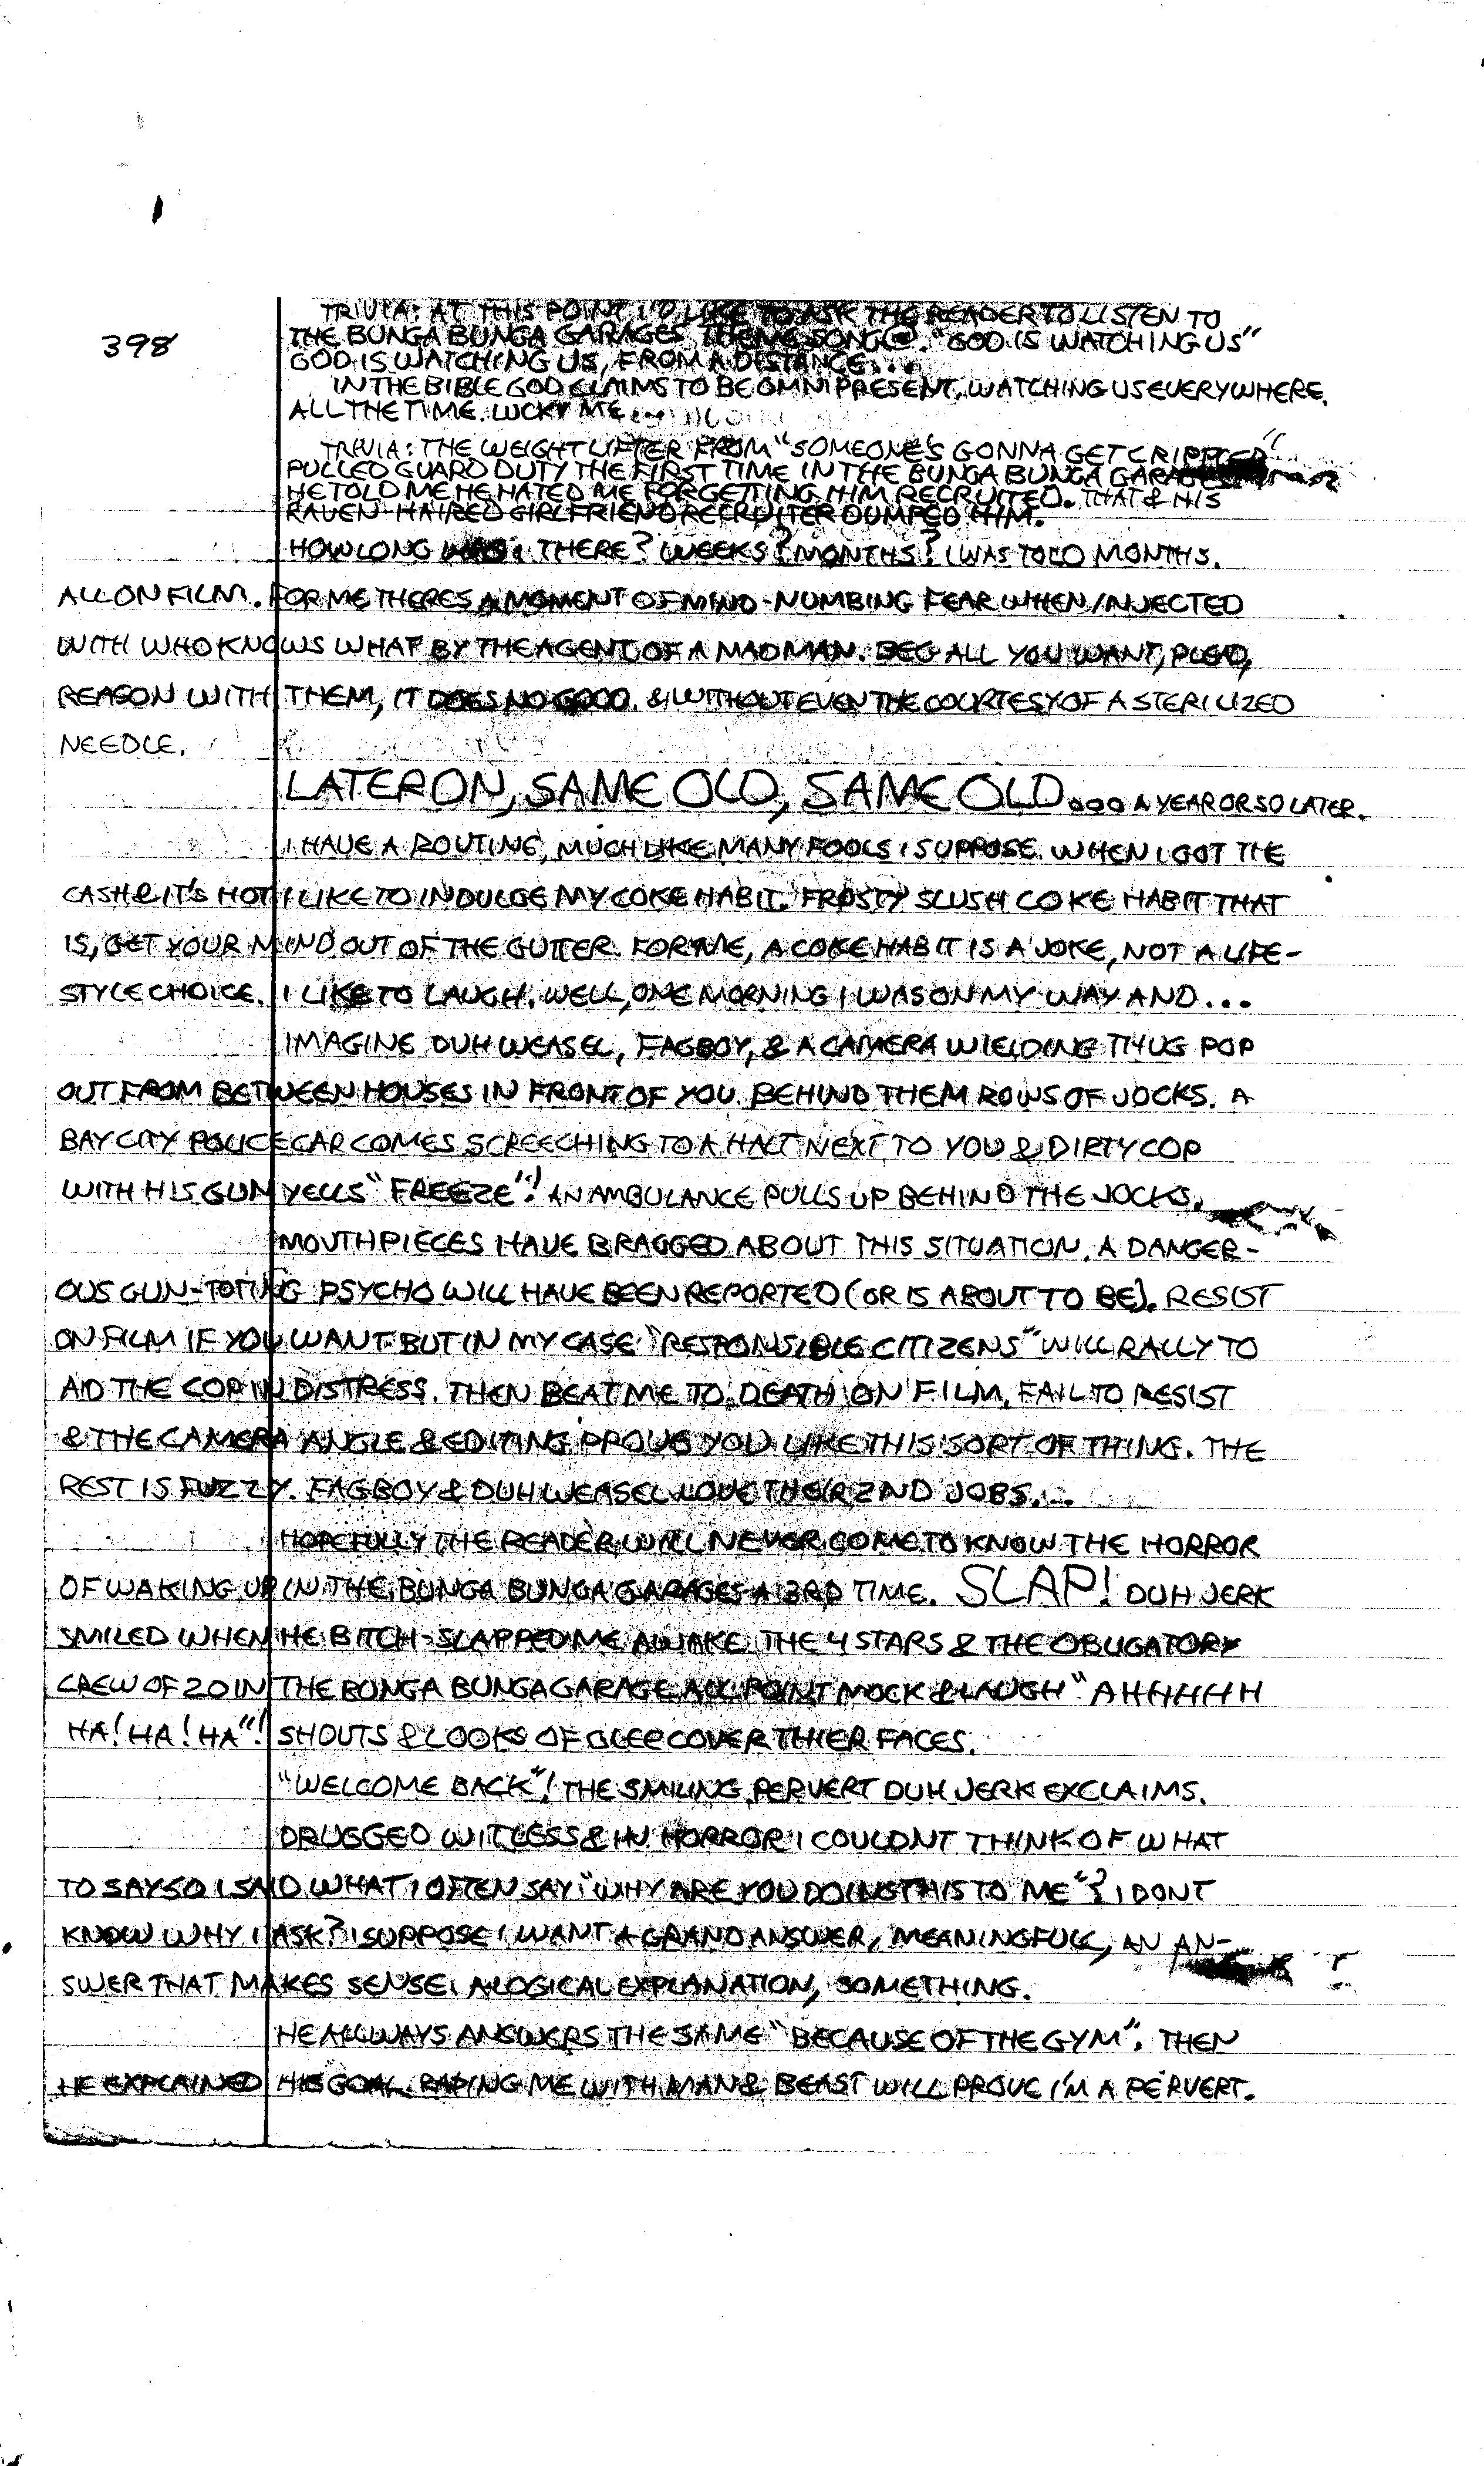 398
TRIVIA: AT THIS POINT I'D LIKE TO ASK THE READER TO LISTEN TO
THE BUNGA BUNGA GARAGES THEME SONG "GOD IS WATCHING US"
GOD IS WATCHING US, FROM A DISTANCE...
IN THE BIBLE GOD CLAIMS TO BE OMNIPRESENT, WATCHING US EVERYWHERE.
ALL THE TIME. LUCKY ME...
TRIVIA: THE WEIGHT LIFTER FROM "SOMEONE'S GONNA GET CRIPPLED"
PULLED GUARD DUTY THE FIRST TIME IN THE BUNGA BUNGA GARAGES
HE TOLD ME HE HATED ME FOR GETTING HIM RECRUITED. THAT & HIS
RAVEN-HAIRED GIRLFRIEND RECRUITER DUMPED HIM.
HOW LONG WAS I THERE? WEEKS? MONTHS? I WAS TOLD MONTHS.
ALL ON FILM. FOR ME THERES A MOMENT OF MIND-NUMBING FEAR WHEN INJECTED
WITH WHO KNOWS WHAT BY THE AGENT OF A MADMAN. BEG ALL YOU WANT, PLEAD,
REASON WITH THEM, IT DOES NO GOOD. & WITHOUT EVEN THE COURTESY OF A STERILIZED
NEEDLE.
LATER ON, SAME OLD, SAME OLD... A YEAR OR SO LATER.
I HAVE A ROUTINE, MUCH LIKE MANY FOOLS I SUPPOSE. WHEN I GOT THE
CASH & IT'S HOT I LIKE TO INDULGE MY COKE HABIT. FROSTY SLUSH COKE HABIT THAT
IS, GET YOUR MIND OUT OF THE GUTTER. FOR ME, A COKE HABIT IS A JOKE, NOT A LIFE-
STYLE CHOICE. I LIKE TO LAUGH. WELL, ONE MORNING I WAS ON MY WAY AND...
IMAGINE DUH WEASEL, FAGBOY, & A CAMERA WIELDING THUG POP
OUT FROM BETWEEN HOUSES IN FRONT OF YOU. BEHIND THEM ROWS OF JOCKS. A
BAY CITY POLICE CAR COMES SCREECHING TO A HALT NEXT TO YOU & DIRTY COP
WITH HIS GUN YELLS "FREEZE"! AN AMBULANCE PULLS UP BEHIND THE JOCKS.
MOUTHPIECES HAVE BRAGGED ABOUT THIS SITUATION. A DANGER-
OUS GUN-TOTING PSYCHO WILL HAVE BEEN REPORTED (OR IS ABOUT TO BE). RESIST
ON FILM IF YOU WANT BUT IN MY CASE "RESPONSIBLE CITIZENS" WILL RALLY TO
AID THE COP IN DISTRESS. THEN BEAT ME TO DEATH ON FILM. FAIL TO RESIST
& THE CAMERA ANGLE & EDITING PROVE YOU LIKE THIS SORT OF THING. THE
REST IS FUZZY. FAGBOY & DUH WEASEL LOVE THEIR 2ND JOBS...
HOPEFULLY THE READER WILL NEVER COME TO KNOW THE HORROR
OF WAKING UP IN THE BUNGA BUNGA GARAGES A 3RD TIME. SLAP! DUH JERK
SMILED WHEN HE BITCH-SLAPPED ME AWAKE. THE 4 STARS & THE OBLIGATORY
CREW OF 20 IN THE BUNGA BUNGA GARAGE ALL POINT MOCK & LAUGH "AHHHHH
HA! HA! HA"! SHOUTS & LOOKS OF GLEE COVER THIER FACES.
"WELCOME BACK"! THE SMILING PERVERT DUH JERK EXCLAIMS.
DRUGGED WITLESS & IN HORROR I COULDNT THINK OF WHAT
TO SAY SO I SAID WHAT I OFTEN SAY "WHY ARE YOU DOING THIS TO ME"? I DONT
KNOW WHY I ASK? I SUPPOSE I WANT A GRAND ANSWER, MEANINGFULL, AN AN-
SWER THAT MAKES SENSE, A LOGICAL EXPLANATION, SOMETHING.
HE ALLWAYS ANSWERS THE SAME "BECAUSE OF THE GYM". THEN
HE EXPLAINED HIS GOAL. RAPING ME WITH MAN & BEAST WILL PROVE I'M A PERVERT.